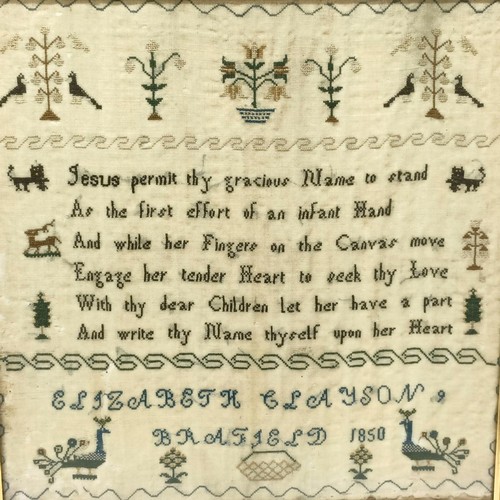 Jesus permit thy gracious Name to stand
As the first effort of an infant Hand
And while her Fingers on the Canvas move
Engage her tender Heart to seek thy Love
With thy dear Children let her have a part
And write thy Name thyself upon her Heart
ELIZABETH CLAYSON 9
BRAFIELD 1850